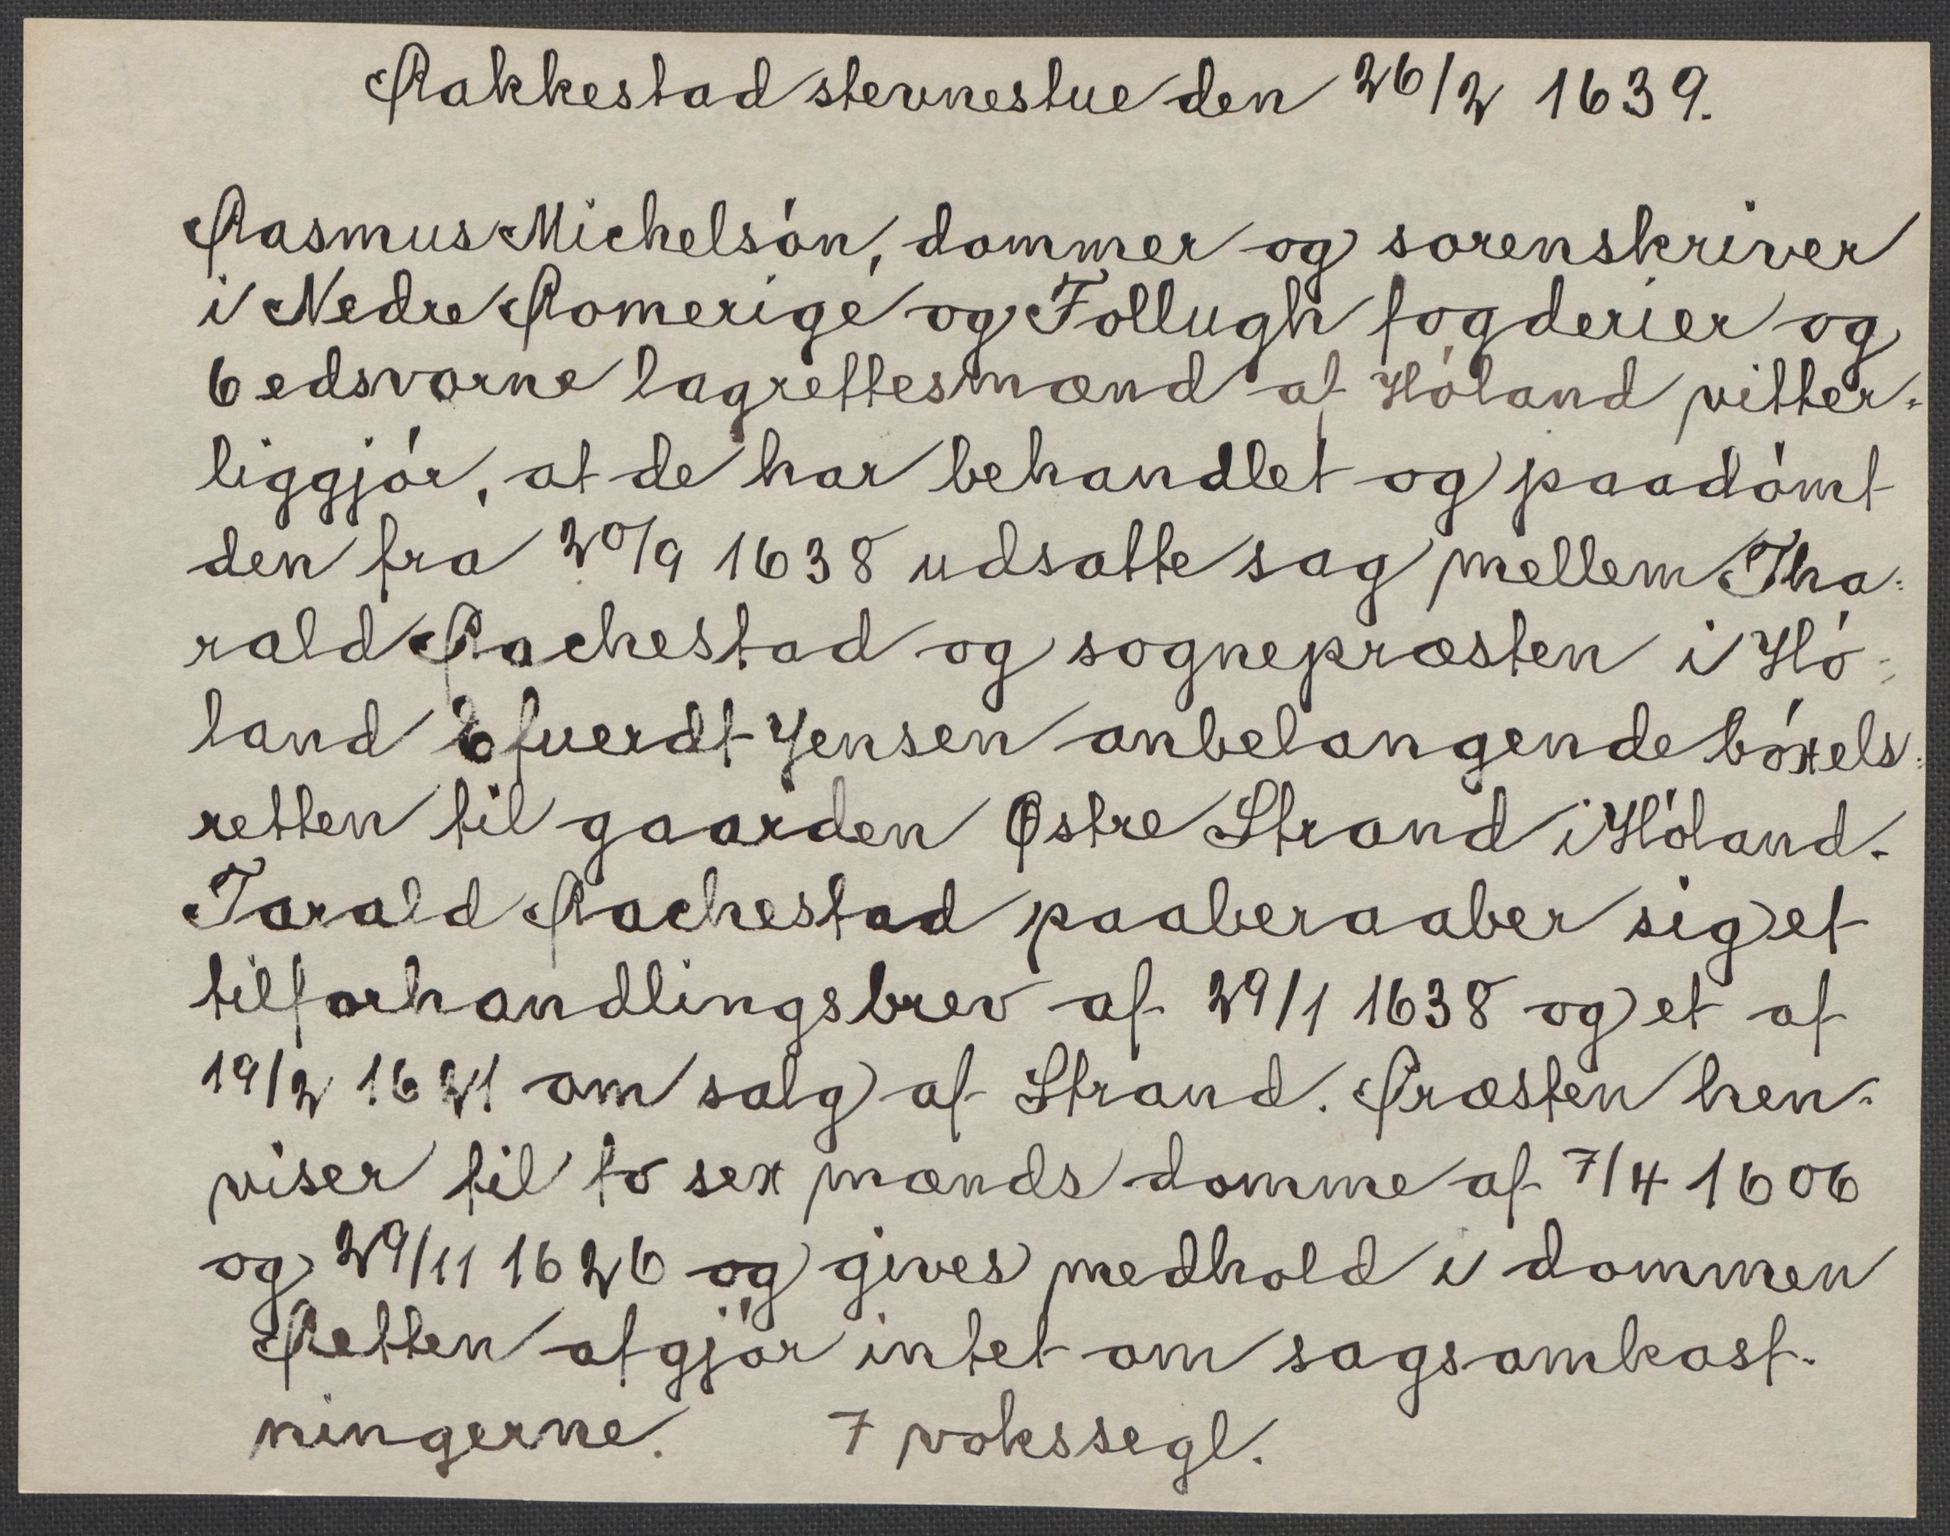 Rakkestad stevnestue den 26/2 1639.
Rasmus Michelsón, dommer og sorenskriver
i Nedre Romerige og Follugh fogderier og
6 edsvorne lagrettesmænd af Hóland vitter-
liggjór, at de har behandlet og paadómt
den fra 20/9 1638 udsatte sag mellem Tha-
rald Rachestad og sognepræsten i Hó-
land Efuerdt Jensen anbelangende bóxels-
retten til gaarden Østre Strand i Hóland.
Tarald Rachestad paaberaaber sig et
tilforhandlingsbrev af 29/1 1638 og et af
19/2 1621 om salg af Strand. Præsten hen-
viser til to sex mænds domme af 7/4 1606
og 29/11 1626 og gives medhold i dommen
Retten afgjór intet om sagsomkost-
ningerne. 7 vokssegl.